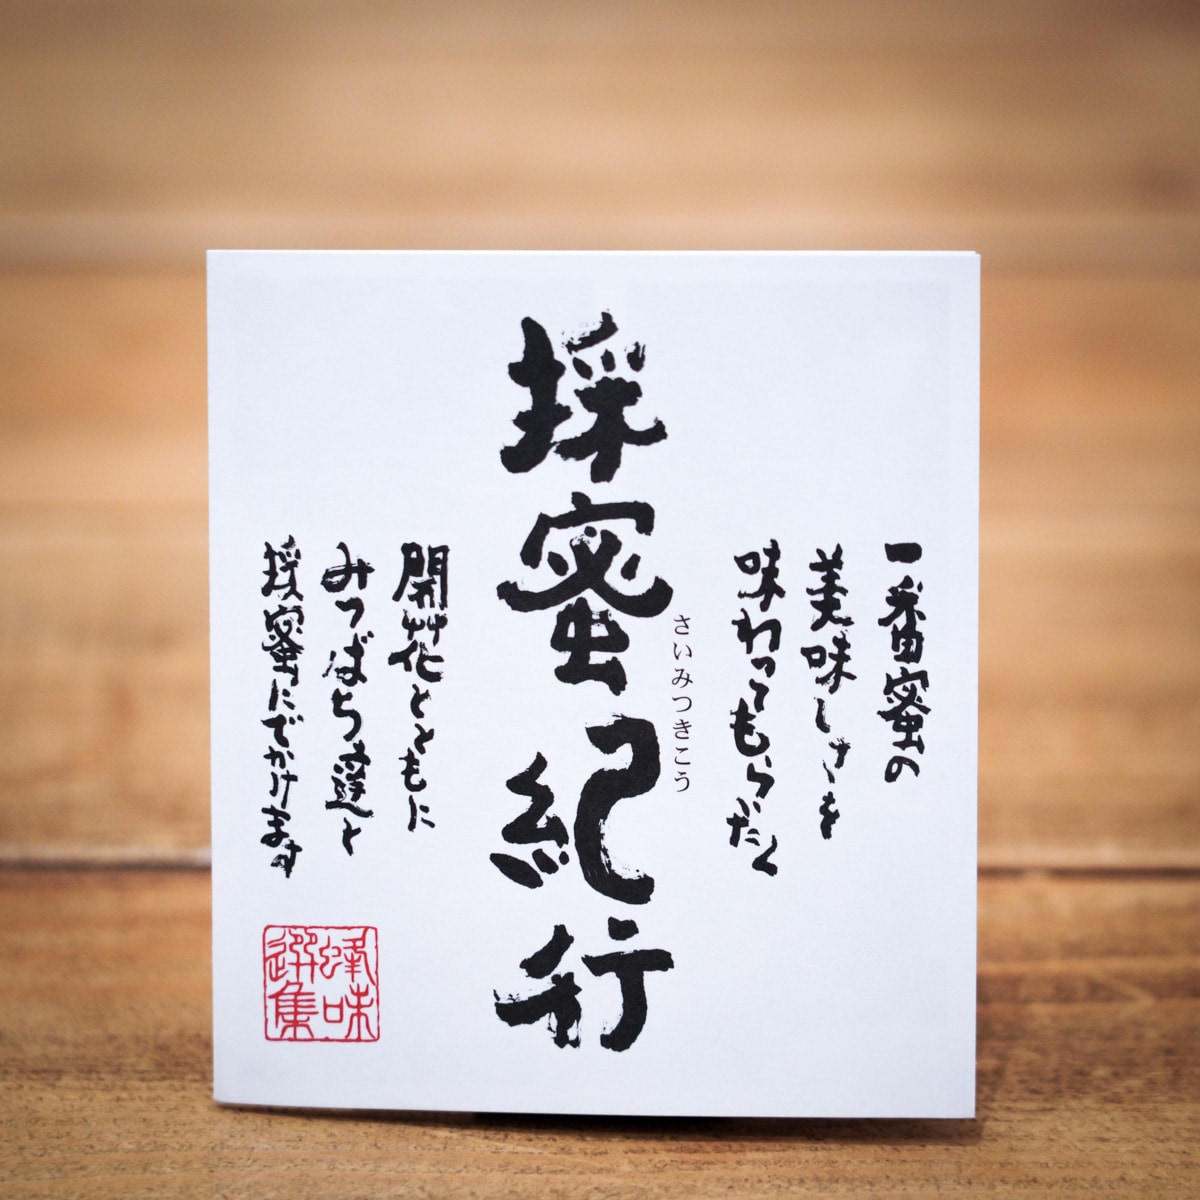 一番蜜の
美味しさを
味わってもらおうと
採蜜紀行
さいみつきこう
開花とともに
みつばち達と
採蜜にでかけます
蜂味
選集